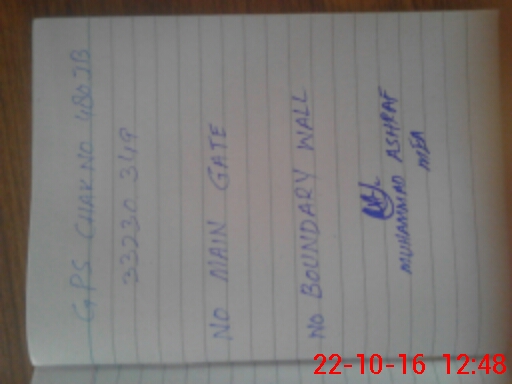 GPS CHAK NO 480 JB
33230349
NO MAIN GATE
NO BOUNDARY WALL
MUHAMMAD ASHRAF
MEA
22-10-16 12:48